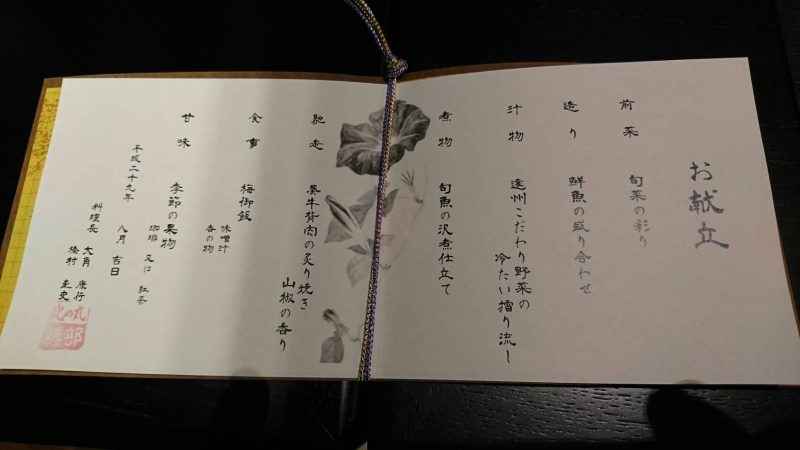 お献立
前菜　旬菜の彩り
造り　鮮魚の盛り合わせ
汁物　遠州こだわり野菜の
冷たい擂り流し
煮物　旬魚の沢煮仕立て
馳走　葵牛背肉の炙り焼き
山椒の香り
食事　梅御飯
味噌汁
香の物
甘味　季節の果物
珈琲　又は　紅茶
平成二十九年　八月　吉日
料理長　大角　康行
村　圭史
北の丸